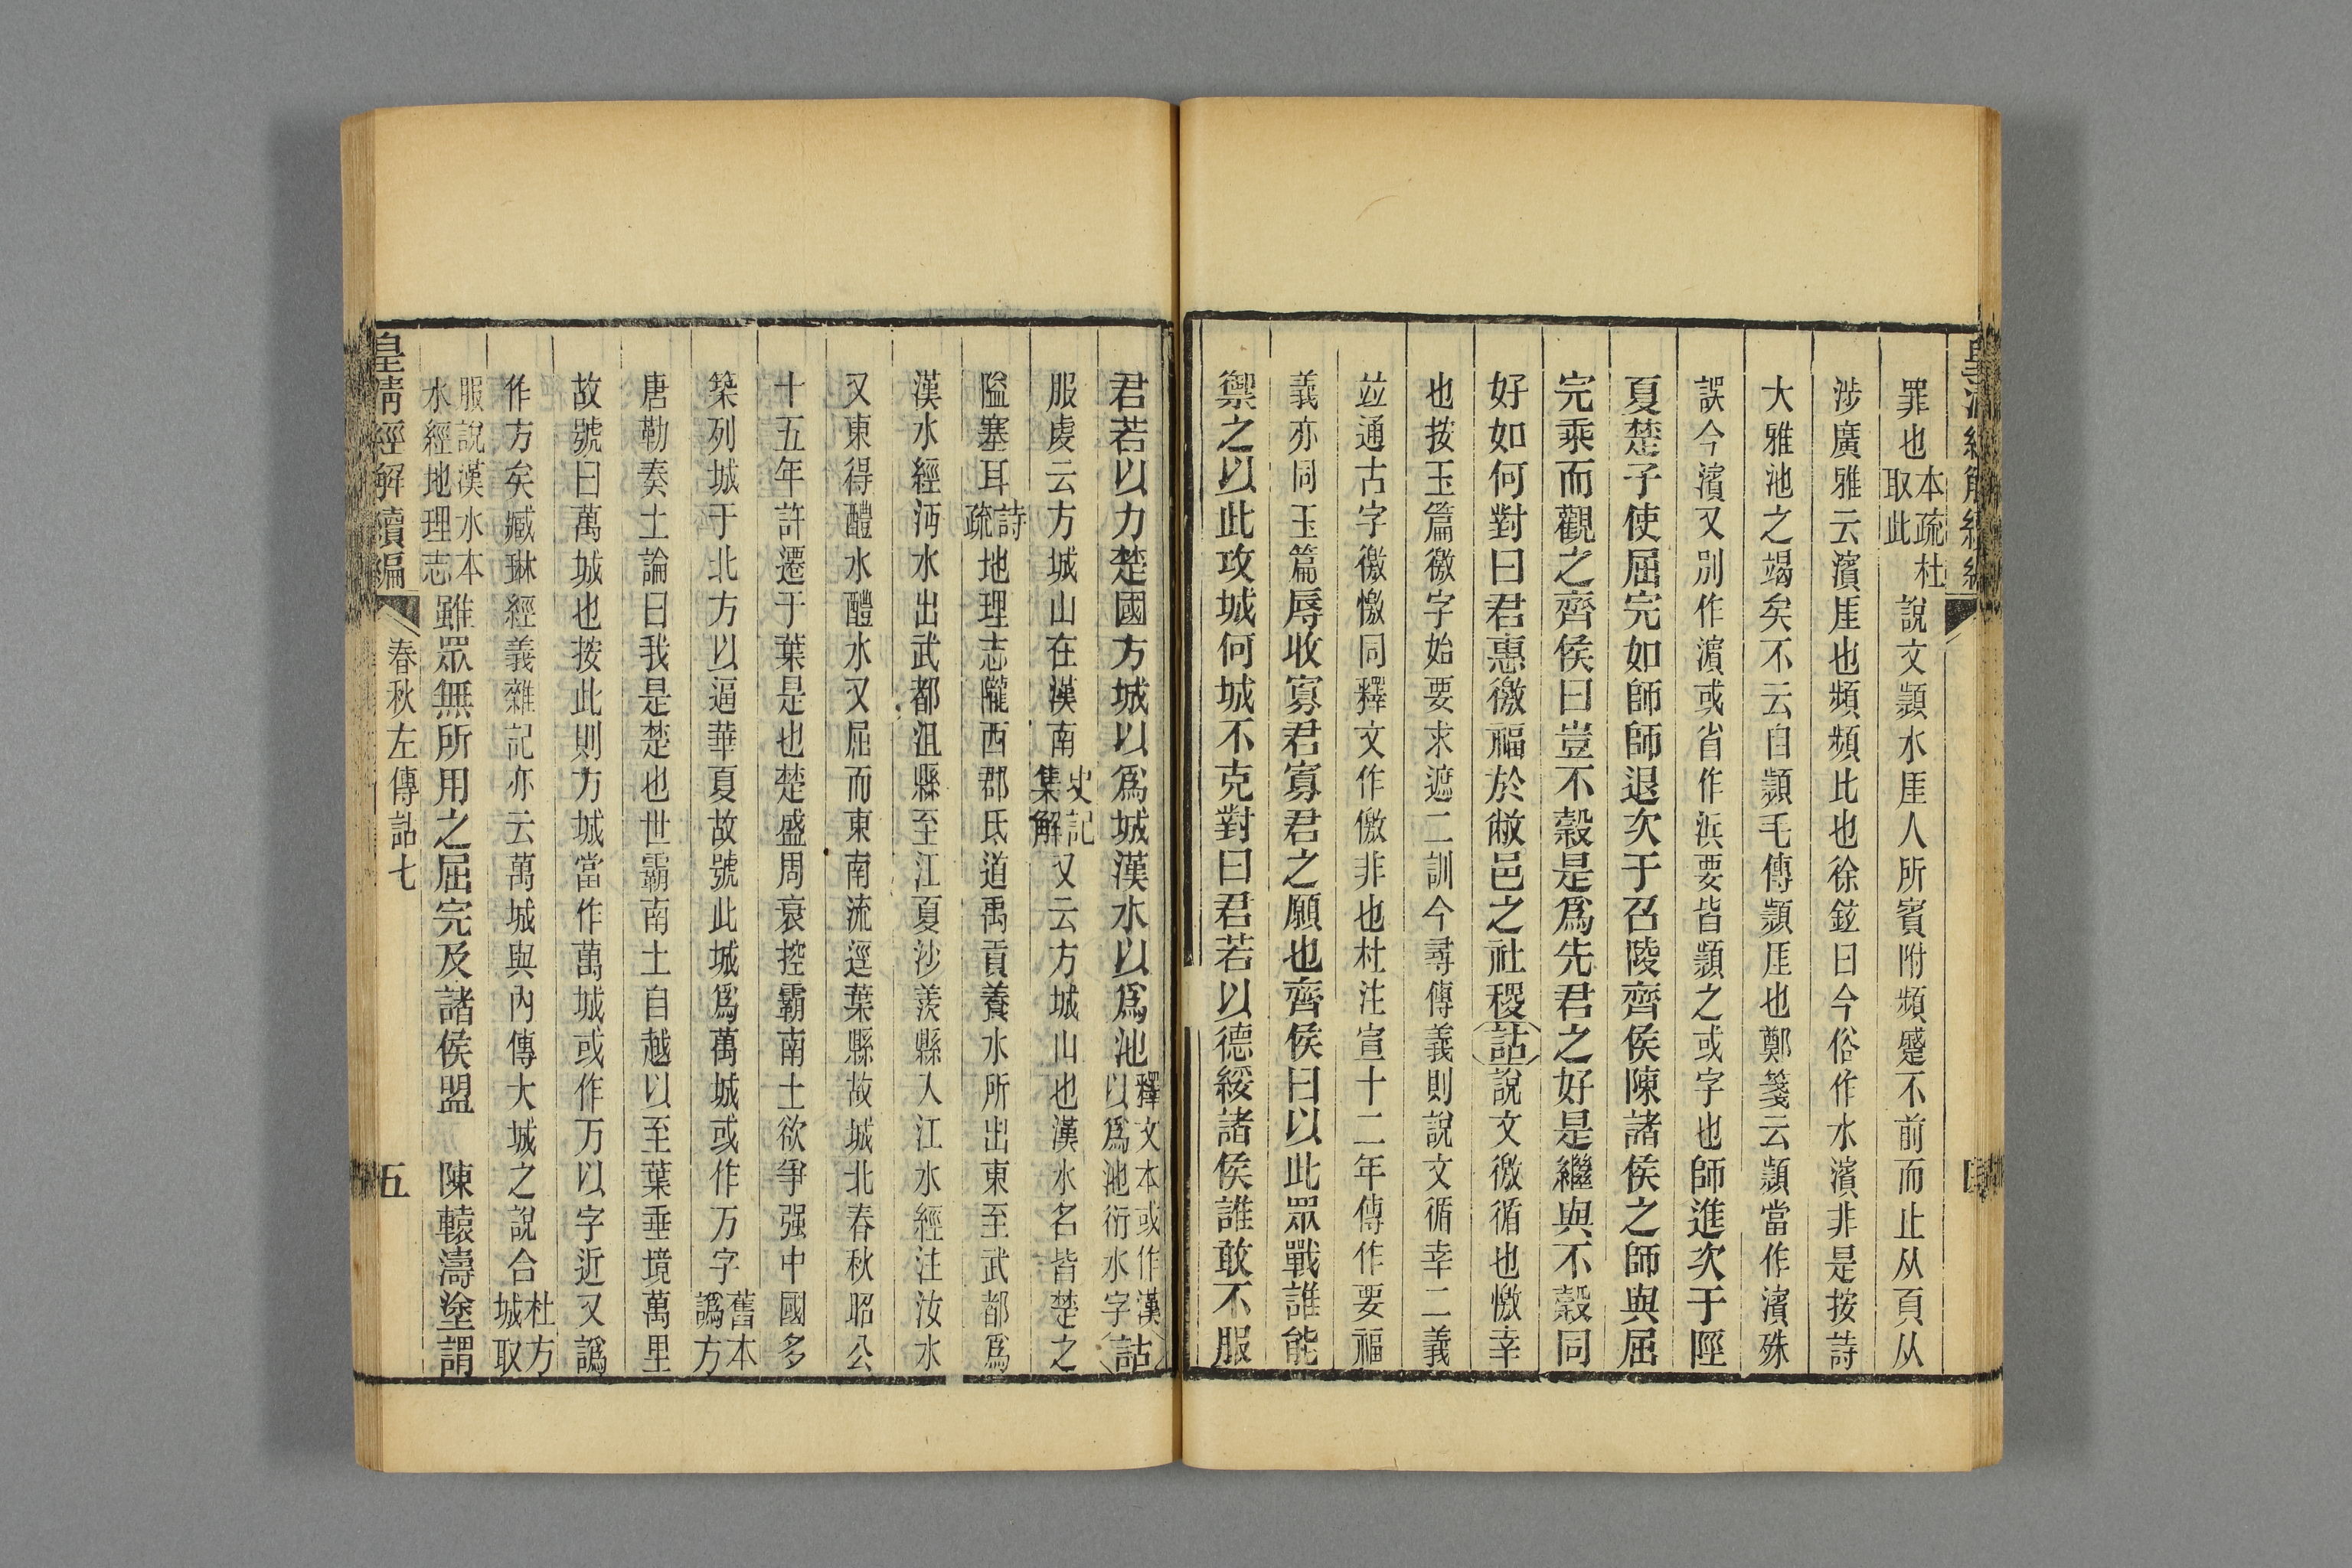 罪也本疏杜取此說文顥水厓人所賓附頻蹙不前而止从頁从
涉廣雅云濱厓也頻頻比也徐鉉曰今俗作水濱非是按詩
大雅池之竭矣不云自顥毛傳顥厓也鄭箋云顥當作濱殊
誤今濱又別作濵或省作浜要皆顥之或字也師進次于陘
夏楚子使屈完如師師退次于召陵齊侯陳諸侯之師與屈
完乘而觀之齊侯曰豈不穀是爲先君之好是繼與不穀同
好如何對曰君惠徼福於敝邑之社稷詁說文徼循也憿幸
也按玉篇徼字始要求遮二訓今尋傳義則說文循幸二義
竝通古字徼憿同釋文作儌非也杜注宣十二年傳作要福
義亦同玉篇辱收寡君寡君之願也齊侯曰以此眾戰誰能
禦之以此攻城何城不克對曰君若以德綏諸侯誰敢不服
君若以力楚國方城以爲城漢水以爲池釋文本或作漢以爲池衍水字詁
服虔云方城山在漢南史記集解又云方城山也漢水名皆楚之
隘塞耳詩疏地理志隴西郡氐道禹貢養水所出東至武都爲
漢水經沔水出武都沮縣至江夏沙羨縣入江水經注汝水
又東得醴水醴水又屈而東南流逕葉縣故城北春秋昭公
十五年許遷于葉是也楚盛周衰控霸南土欲爭强中國多
築列城于北方以逼華夏故號此城爲萬城或作万字舊本譌方
唐勒奏土論曰我是楚也世霸南土自越以至葉垂境萬里
故號曰萬城也按此則方城當作萬城或作万以字近又譌
作方矣臧琳經義雜記亦云萬城與內傳大城之說合杜方城取
服說漢水本水經地理志雖眾無所用之屈完及諸侯盟 陳轅濤塗謂
皇清經解續編 春秋左傳詁七 五